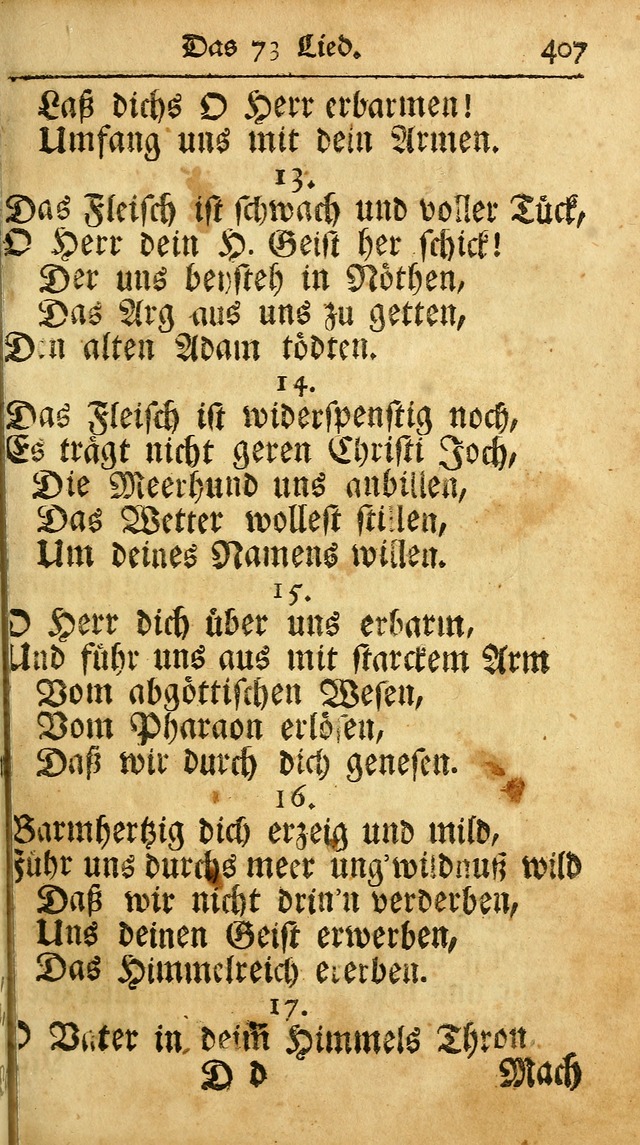 Das 73 Lied. 407
Laß dichs O Herr erbarmen!
Umfang uns mit dein Armen.
13.
Das Fleisch ist schwach und voller Tück,
O Herr dein H. Geist her schick!
Der uns beysteh in Nöthen,
Das Arg aus uns zu getten,
Den alten Adam tödten.
14.
Das Fleisch ist widerspenstig noch,
Es trägt nicht geren Christi Joch,
Die Meerhund uns anbillen,
Das Wetter wollest stillen,
Um deines Namens willen.
15.
O Herr dich über uns erbarm,
Und führ uns aus mit starckem Arm
Vom abgöttischen Wesen,
Vom Pharaon erlösen,
Daß wir durch dich genesen.
16.
Barmhertzig dich erzeig und mild,
Führ uns durchs meer ung'wildnuß wild
Daß wir nicht drin'n verderben,
Uns deinen Geist erwerben,
Das Himmelreich ererben.
17.
O Vater in deim Himmels Thron
D d Mach